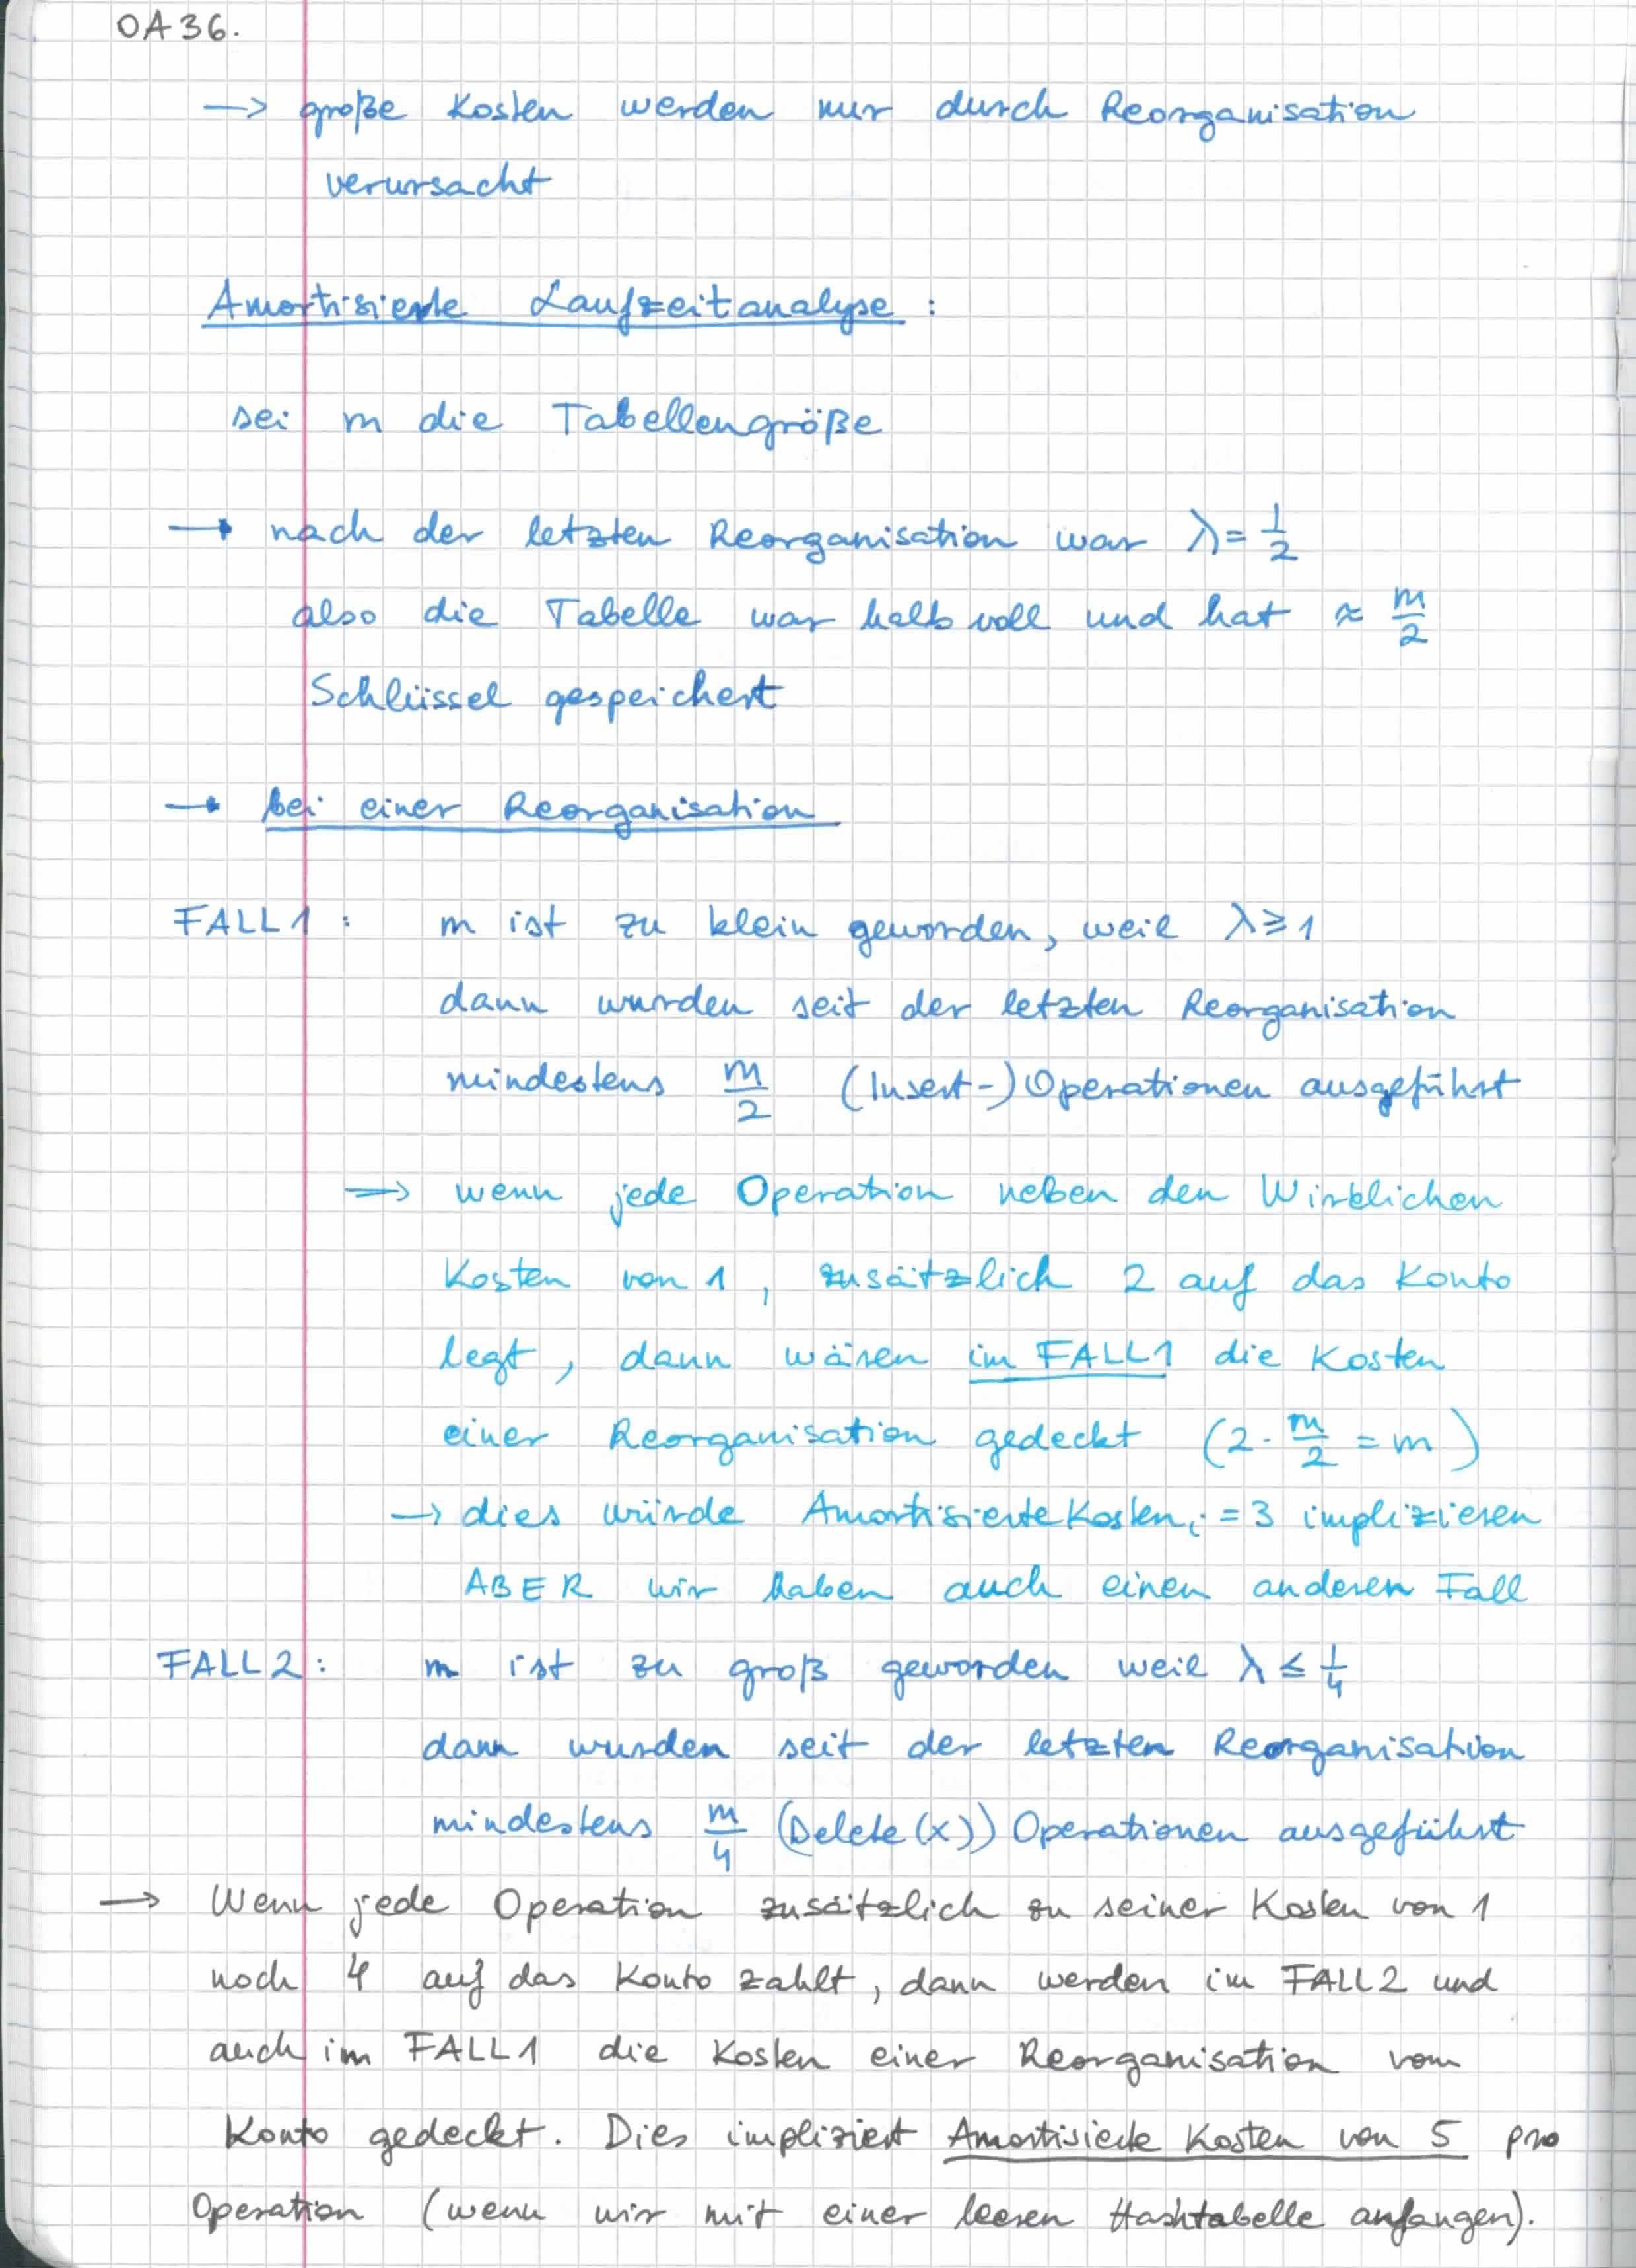 OA36.
→ große Kosten werden nur durch Reorganisation
verursacht
Amortisierte Laufzeitanalyse :
sei m die Tabellengröße
→ nach der letzten Reorganisation war λ = 1/2
also die Tabelle war halb voll und hat ≈ m/2
Schlüssel gespeichert
→ bei einer Reorganisation
FALL 1 : m ist zu klein geworden, weil λ ≥ 1
dann wurden seit der letzten Reorganisation
mindestens m/2 (Insert-) Operationen ausgeführt
→ wenn jede Operation neben den Wirklichen
Kosten von 1, zusätzlich 2 auf das Konto
legt, dann wären im FALL 1 die Kosten
einer Reorganisation gedeckt (2 · m/2 = m)
→ dies würde AmortisierteKosten_i = 3 implizieren
ABER wir haben auch einen anderen Fall
FALL 2 : m ist zu groß geworden weil λ ≤ 1/4
dann wurden seit der letzten Reorganisation
mindestens m/4 (Delete(x)) Operationen ausgeführt
→ Wenn jede Operation zusätzlich zu seiner Kosten von 1
noch 4 auf das Konto zahlt, dann werden im FALL 2 und
auch im FALL 1 die Kosten einer Reorganisation vom
Konto gedeckt. Dies impliziert Amortisierte Kosten von 5 pro
Operation (wenn wir mit einer leeren Hashtabelle anfangen).